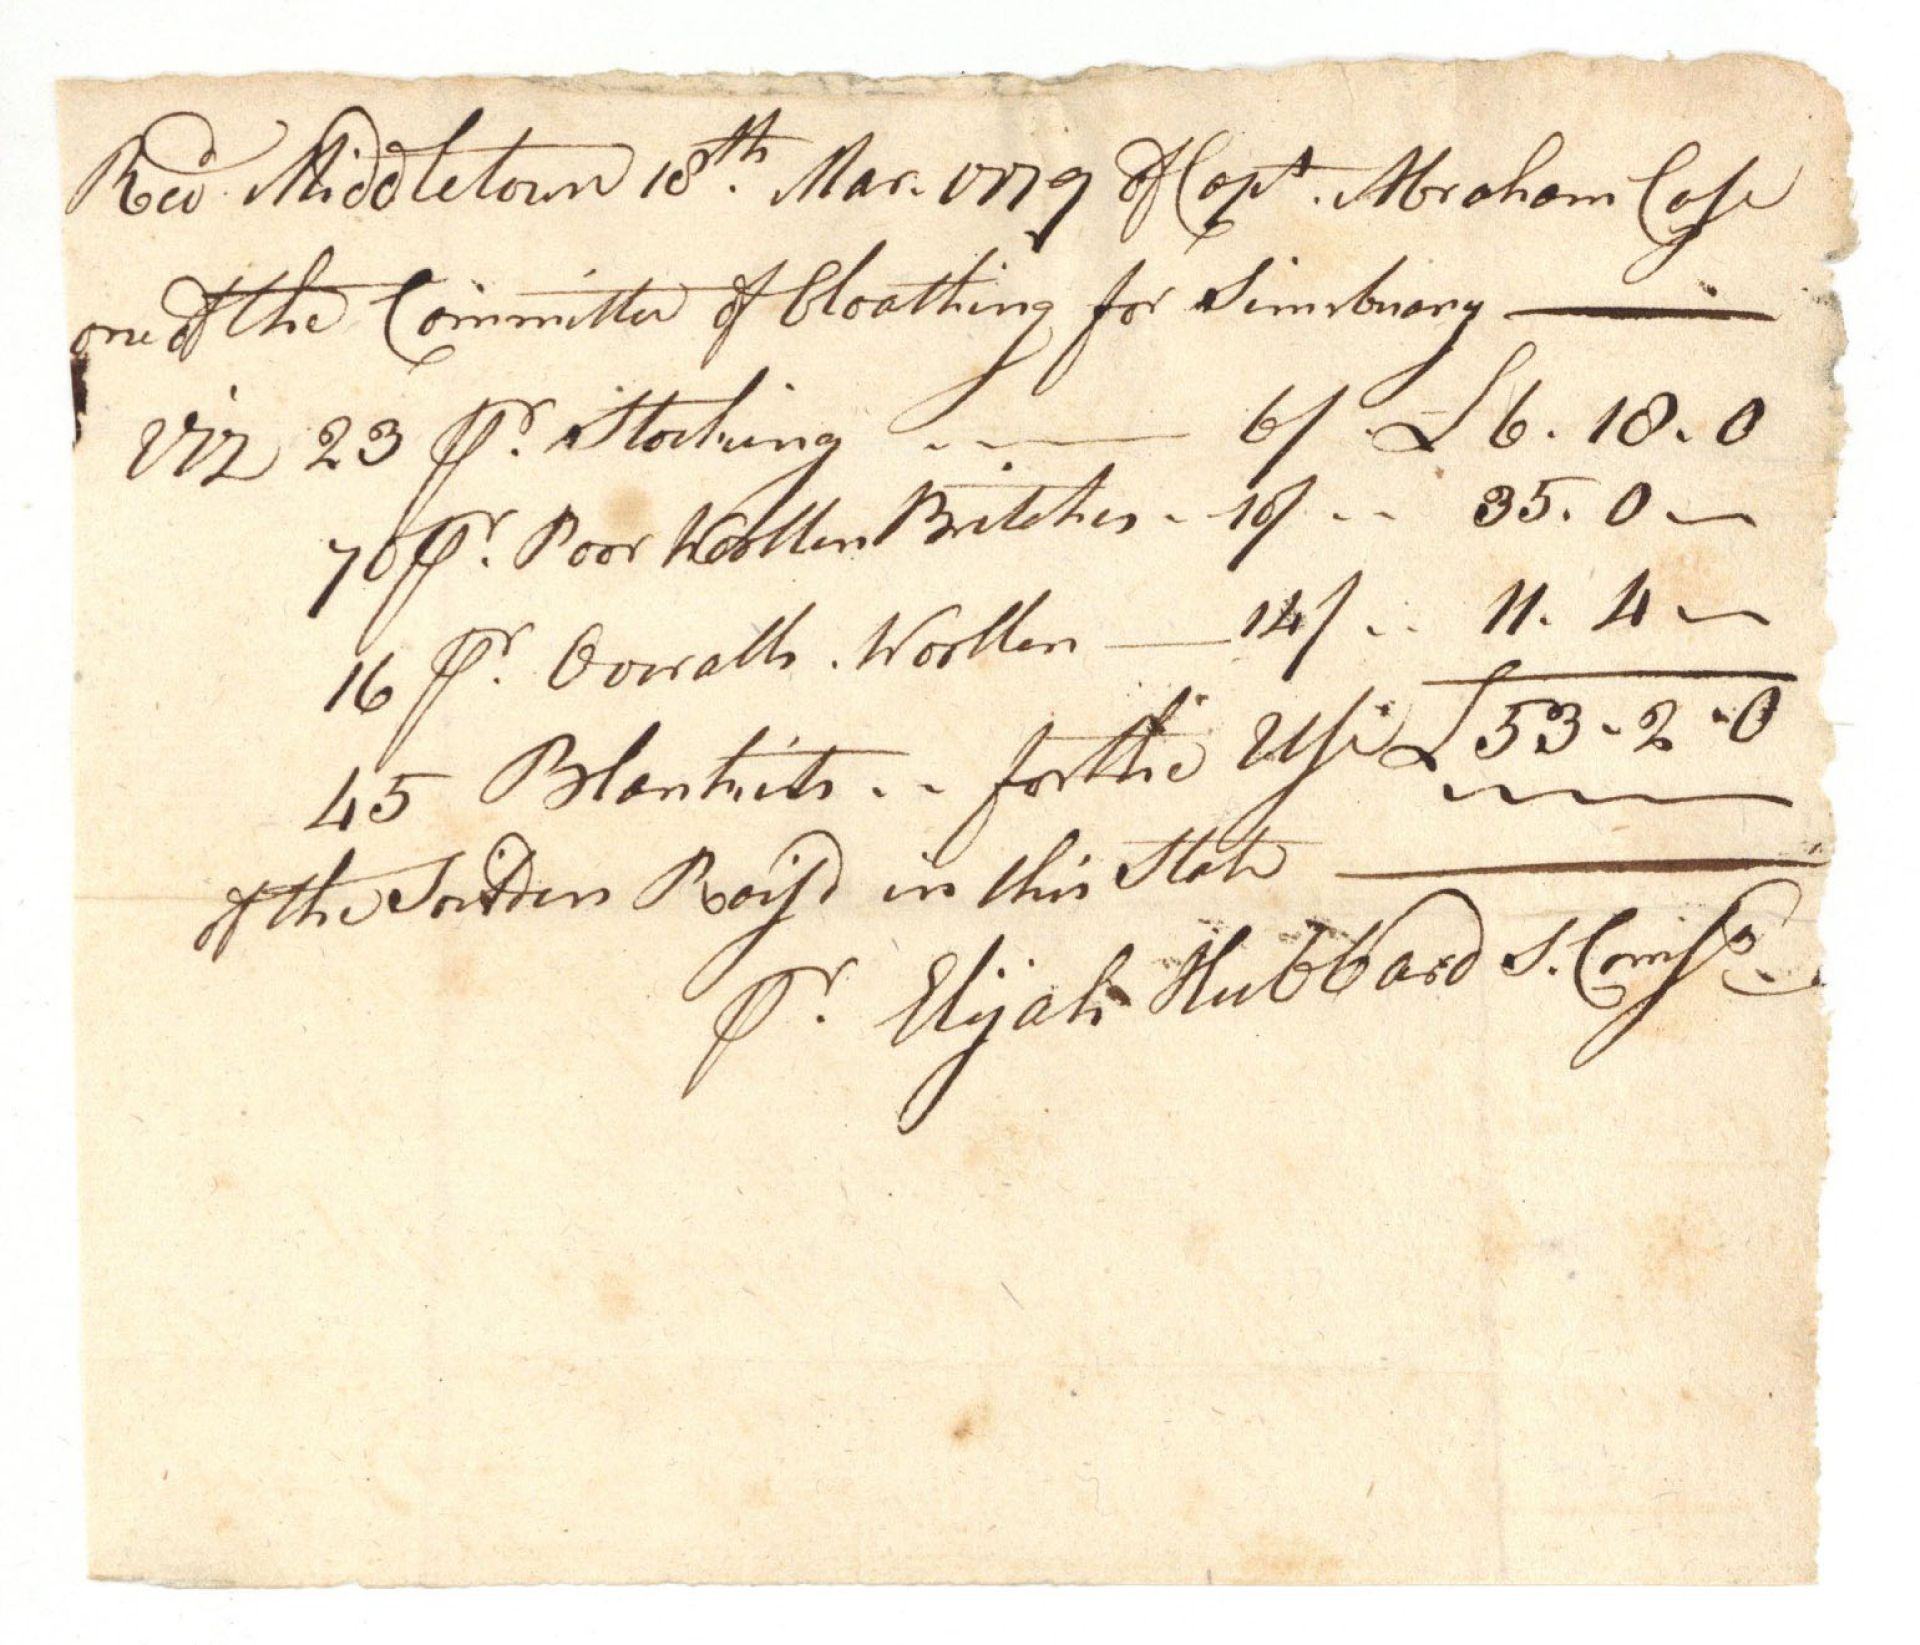 Recd. Middletown 18th. Mar. 1779 of Capt. Abraham Case
one of the Committee of Cloathing for Simsbuary
Viz 23 pr. Stocking 6/ £6. 18. 0
70 pr. Poor Woollen Britches 10/ 35. 0
16 pr. Overalls. Woollen 14/ 11. 4
45 Blankeits for the Use £53-2-0
of the Soldiers Rais'd in this State
pr. Elijah Hubbard S. Comsy